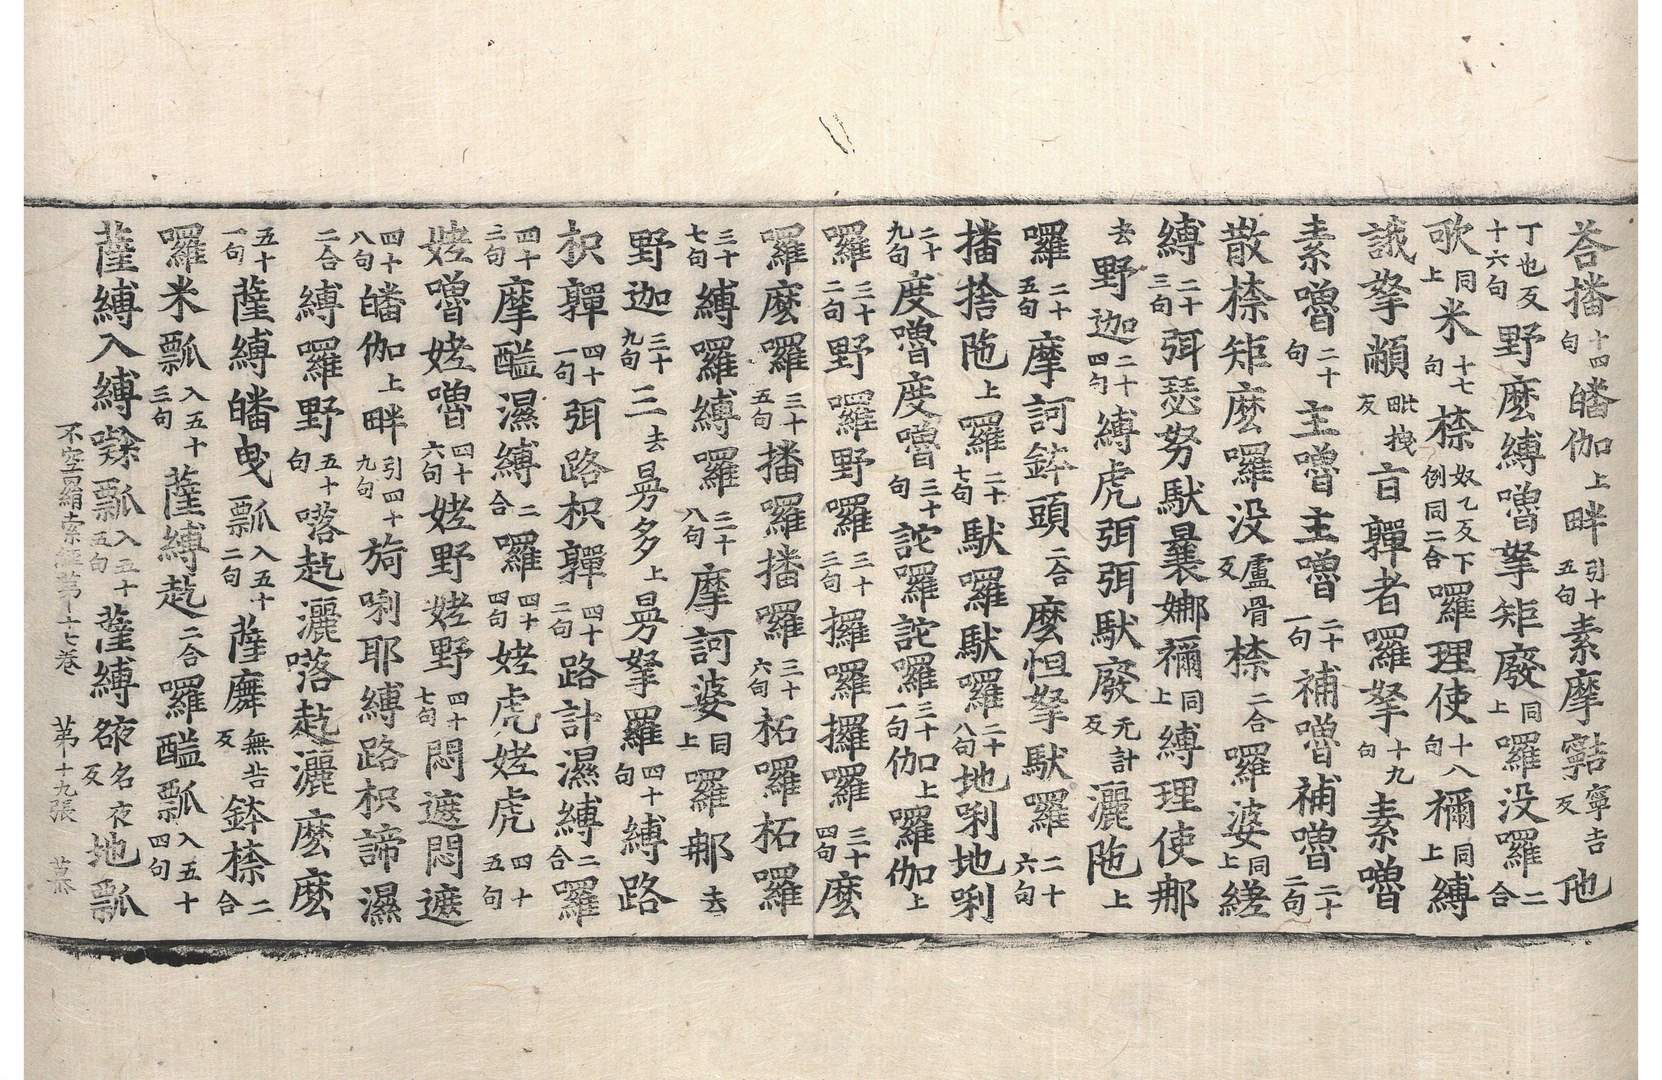 荅播十四句皤伽上畔引十五句素摩寧吉反他
丁也反十六句野麽縛嚕拏矩廢同上囉没囉二合
歌同上米十七句㮈奴乙反下例同二合囉理使十八句禰同上縛
誐拏顣毗拽反㐭鞸者囉拏十九句素嚕
素嚕二十句主嚕主嚕二十一句補嚕補嚕二十二句
散㮈矩麽囉没盧骨反㮈二合囉婆同上縒
縛二十三句弭瑟努馱曩娜禰同上縛理使那
去野迦二十四句縛虎弭弭馱廢无計反灑陁上
囉二十五句摩訶鉢頭二合麽怛拏馱囉二十六句
播捨陁上囉二十七句馱囉馱囉二十八句地唎地唎
二十九句度嚕度嚕三十句詑囉詑囉三十一句伽上囉伽上
囉三十二句野囉野囉三十三句攞囉攞囉三十四句麽
囉麽囉三十五句播囉播囉三十六句柘囉柘囉
三十七句縛囉縛囉三十八句摩訶婆同上囉那去
野迦三十九句三去曷多上曷拏羅四十句縛路
枳鞸四十一句弭路枳鞸四十二句路計濕縛二合囉
四十三句摩醯濕縛二合囉四十四句姥虎姥虎四十五句
姥嚕姥嚕四十六句姥野姥野四十七句悶遮悶遮
四十八句皤伽上畔引四十九句旖唎耶縛路枳諦濕
二合縛囉野五十句㗚訖灑㗚訖灑麽麽
五十一句薩縛皤曳瓢入五十二句薩廡無吉反鉢㮈二合
囉米瓢入五十三句薩縛訖二合囉醯瓢入五十四句
薩縛入縛㘑瓢入五十五句薩縛㢋名夜反地瓢
不空羂索經第十七卷　第十九張　慕